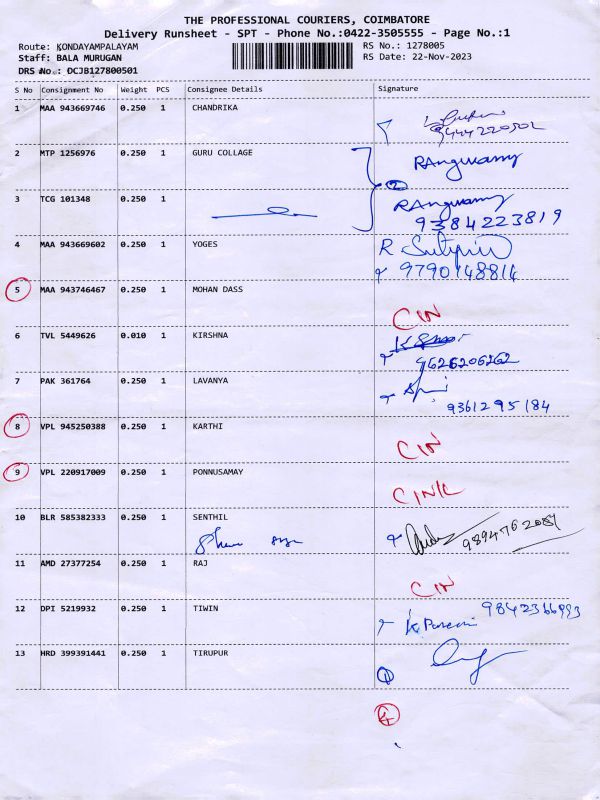 THE PROFESSIONAL COURIERS, COIMBATORE
Delivery Runsheet - SPT - Phone No.:0422-3505555 - Page No.:1
Route: KONDAYAMPALAYAM
RS No.: 1278005
Staff: BALA MURUGAN
RS Date: 22-Nov-2023
DRS No.: DCJB127800501
S No Consignment No Weight PCS Consignee Details Signature
1 MAA 943669746 0.250 1 CHANDRIKA
9444220502
2 MTP 1256976 0.250 1 GURU COLLAGE RAngwamy
3 TCG 101348 0.250 1 RAngwamy
2
9384223819
4 MAA 943669602 0.250 1 YOGES R
9790148814
5 MAA 943746467 0.250 1 MOHAN DASS
CIN
6 TVL 5449626 0.010 1 KIRSHNA
9626206262
7 PAK 361764 0.250 1 LAVANYA
9361295184
8 VPL 945250388 0.250 1 KARTHI
CIN
9 VPL 220917009 0.250 1 PONNUSAMAY
CINK
10 BLR 585382333 0.250 1 SENTHIL
9894762087
11 AMD 27377254 0.250 1 RAJ
CIN
12 DPI 5219932 0.250 1 TIWIN 9842366993
13 HRD 399391441 0.250 1 TIRUPUR
1
4